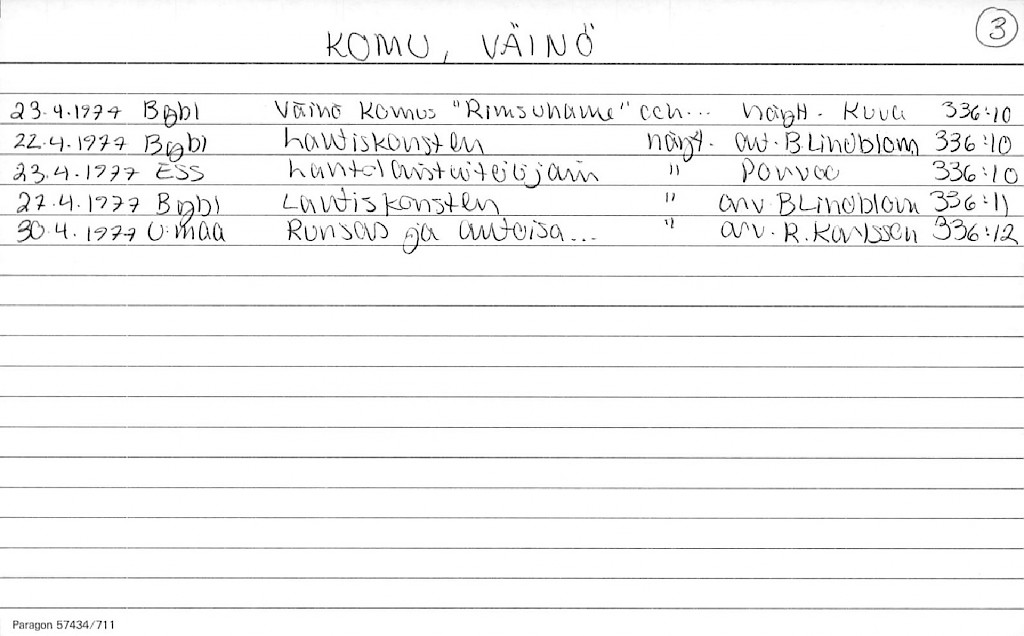 3
KOMU, VÄINÖ
23.4.1977 Bgbl Väinö Komus "Rimsuhame" och... näytt. Kuva 336:10
22.4.1977 Bgbl Lantiskonsten näyt. arv. B Lindblom 336:10
23.4.1977 ESS " Porvoo 336:10
27.4.1977 Bgbl Lantiskonsten " arv. B Lindblom 336:11
30.4.1977 U:maa Runsas ja antoisa... " arv. R. Karlsson 336:12
Paragon 57434/711